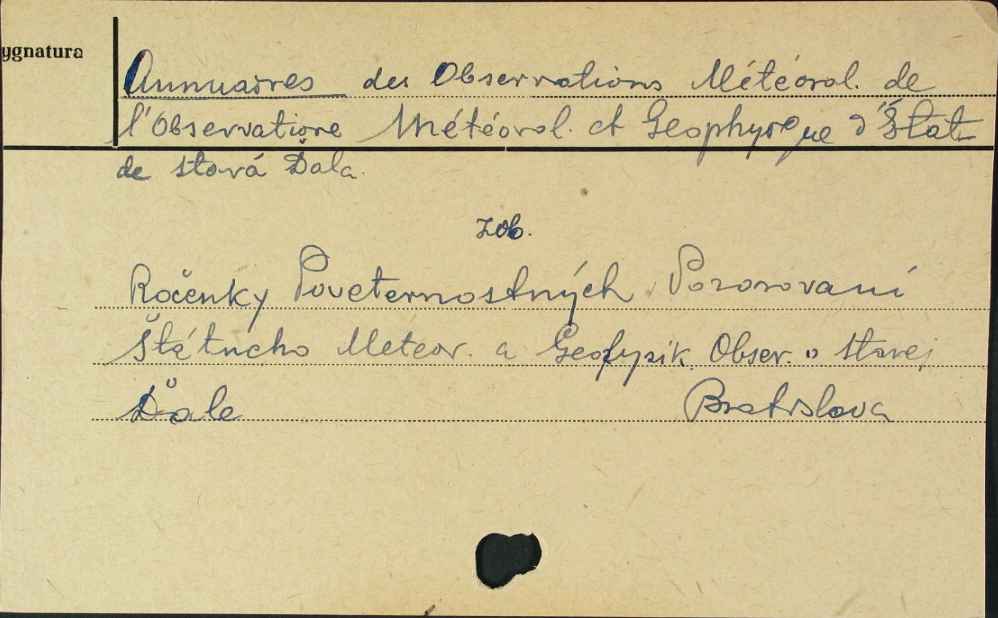 ygnatura
Annuaires des Observations Météorol. de
l'Observatoire Météorol. et Geophysique d'État
de Stará Ďala.
zob.
Ročenky Poveternostných Pozorovaní
Štátneho Meteor. a Geofyzik. Obser. v Starej
Ďale Bratislava